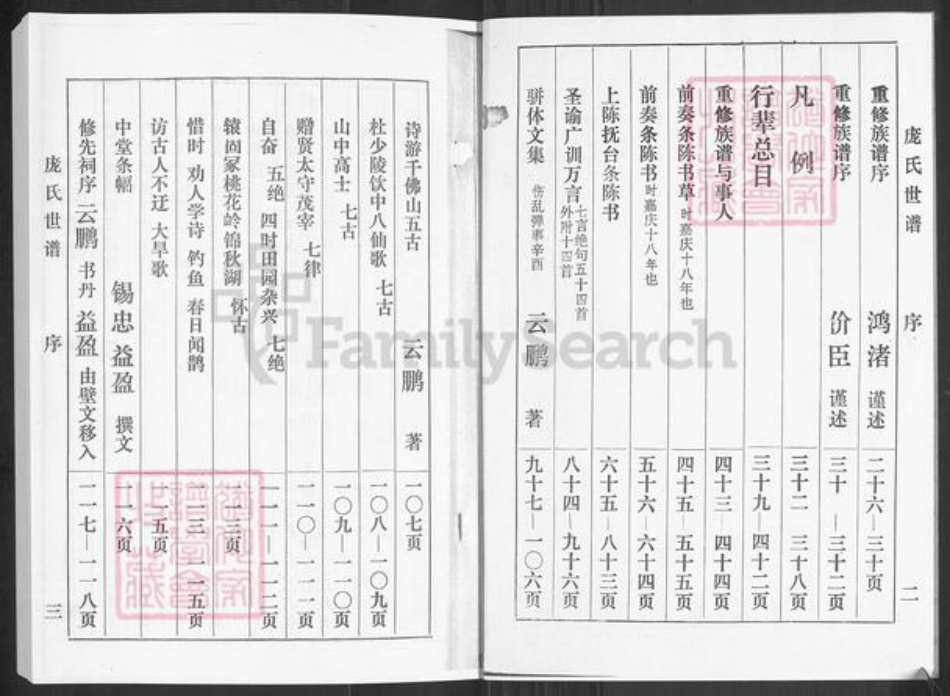 庞氏世谱 序 二
重修族谱序 鸿渚 谨述 二十六—三十页
重修族谱序 价臣 谨述 三十—三十二页
凡例 三十二 三十八页
行辈总目 三十九—四十二页
重修族谱与事人 四十三—四十四页
前奏条陈书草 时嘉庆十八年也 四十五—五十五页
前奏条陈书 时嘉庆十八年也 五十六—六十四页
上陈抚台条陈书 六十五—八十三页
圣谕广训万言 七言绝句五十四首 外附十四首 八十四—九十六页
骈体文集 伤乱弹事辛酉 云鹏 著 九十七—一〇六页
诗游千佛山五古 云鹏 著 一〇七页
杜少陵饮中八仙歌 七古 一〇八—一〇九页
山中高士 七古 一〇九—一一〇页
赠贤太守茂宰 七律 一一〇—一一一页
自奋 五绝 四时田园杂兴 七绝 一一一—一一二页
辕固冢桃花岭锦秋湖 怀古 一一三页
惜时 劝人学诗 钓鱼 春日闻鹊 一一三 一一五页
访古人不迂 大旱歌 一一五页
中堂条幅 锡忠 益盈 撰文 一一六页
修先祠序 云鹏 书丹 益盈 由壁文移入 一一七—一一八页
庞氏世谱 序 三
FamilySearch